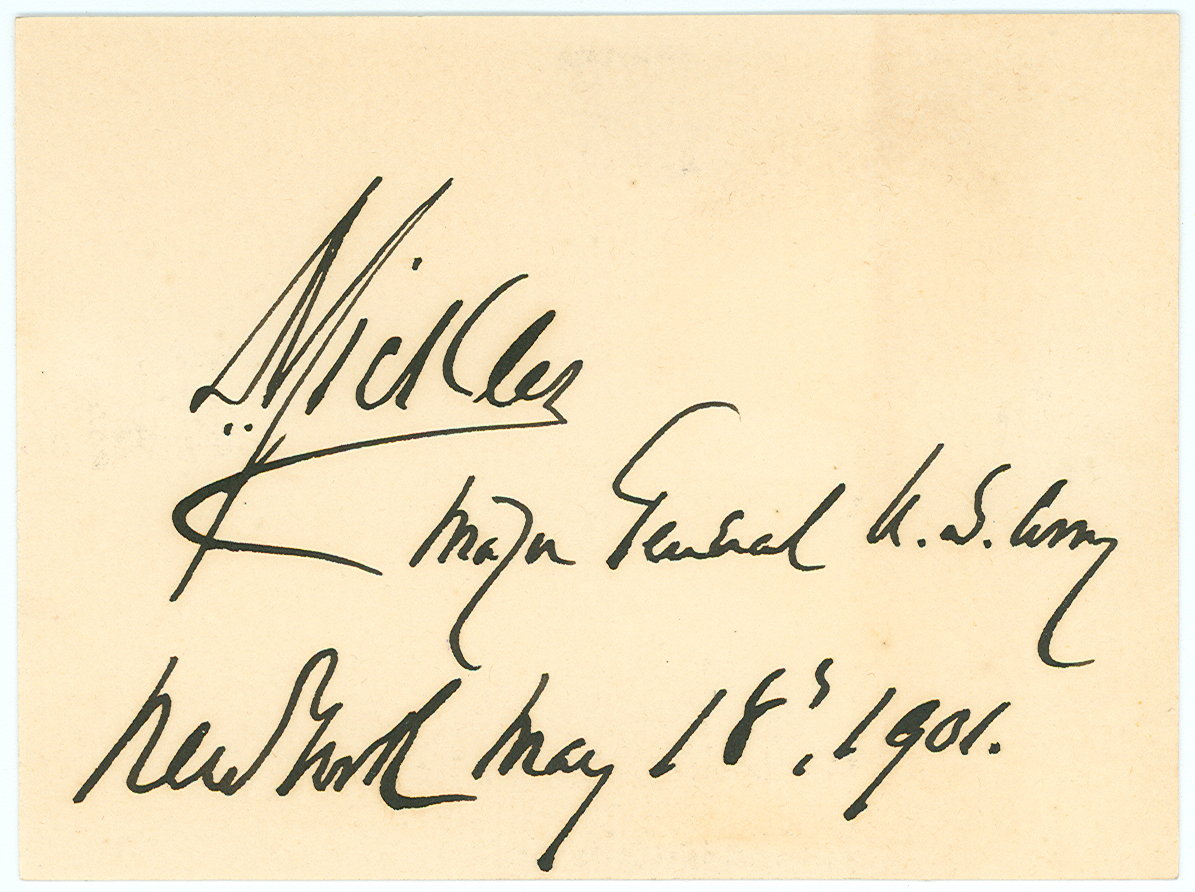 D. Sickles
Major General U. S. Army
New York May 18, 1901.